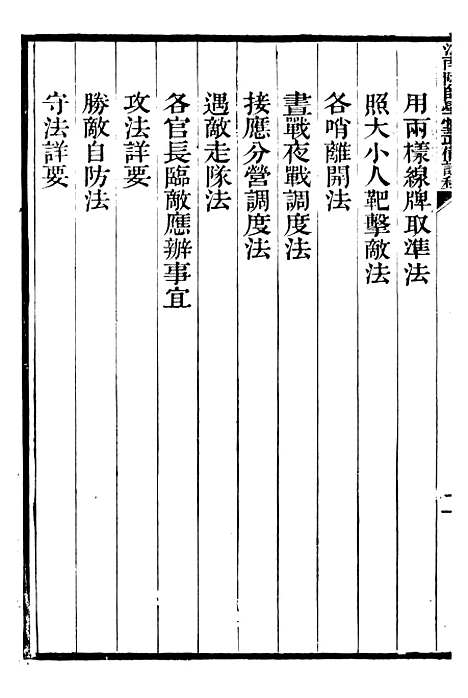 用兩樣線牌取準法
照大小人靶擊敵法
各哨離開法
晝戰夜戰調度法
接應分營調度法
遇敵走隊法
各官長臨敵應辦事宜
攻法詳要
勝敵自防法
守法詳要